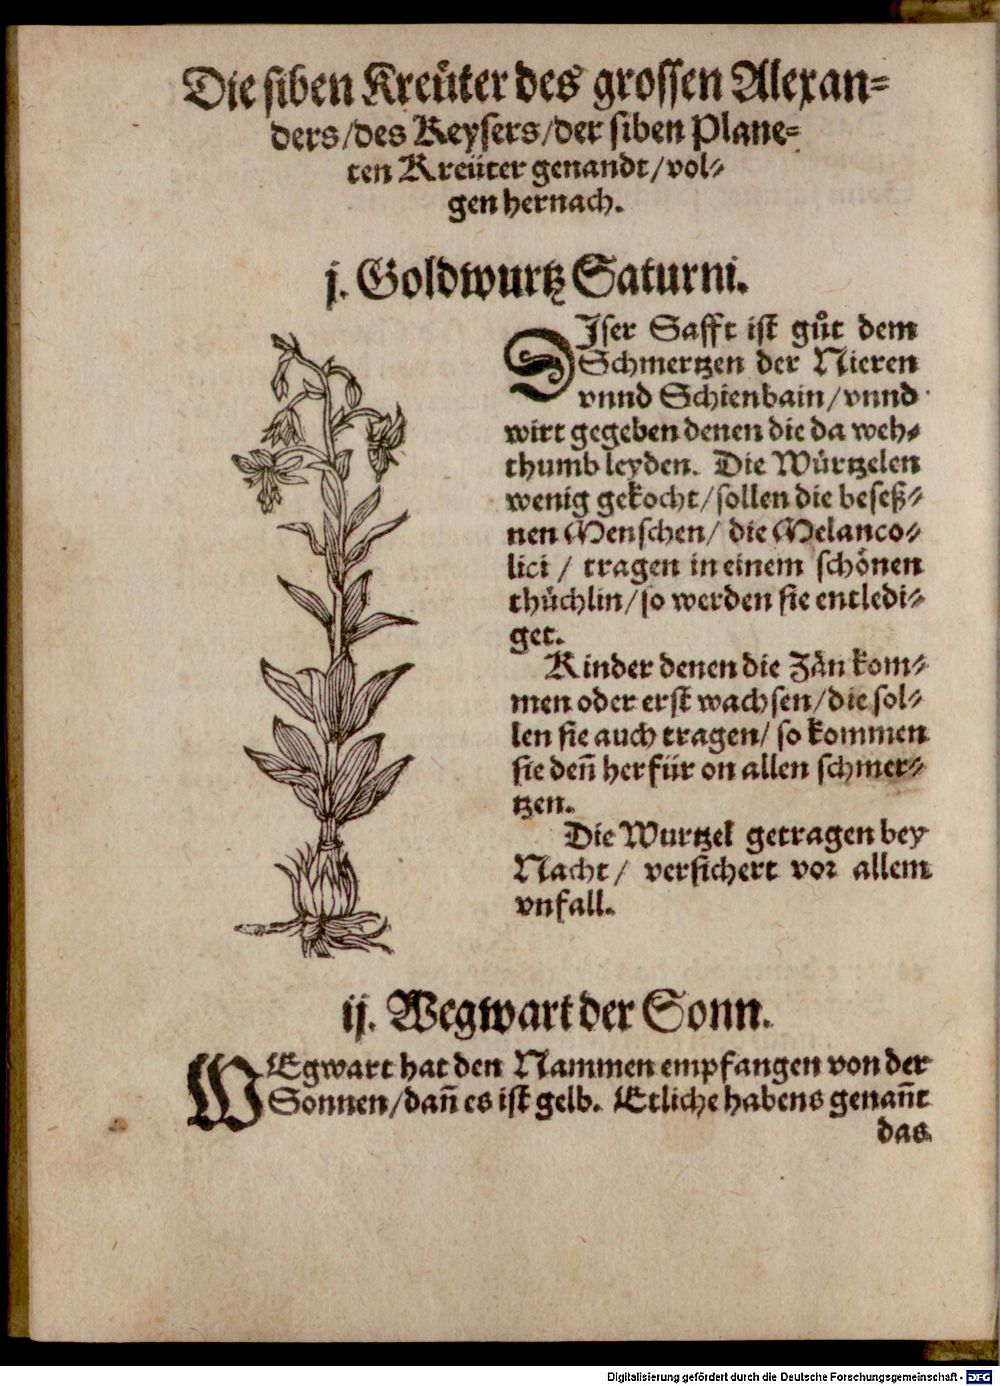 Die siben Kreüter des grossen Alexan-
ders/des Keysers/der siben Plane-
ten Kreüter genandt/vol-
gen hernach.
j. Goldwurtz Saturni.
DIser Safft ist gůt dem
Schmertzen der Nieren
vnnd Schienbain/vnnd
wirt gegeben denen die da weh-
thumb leyden. Die Würtzelen
wenig gekocht/sollen die beseß-
nen Menschen/ die Melanco-
lici / tragen in einem schönen
thüchlin/so werden sie entledi-
get.
Kinder denen die Zän kom-
men oder erst wachsen/die sol-
len sie auch tragen/ so kommen
sie den̄ herfür on allen schmer-
tzen.
Die Wurtzel getragen bey
Nacht/ versichert vor allem
vnfall.
ij. Wegwart der Sonn.
WEgwart hat den Nammen empfangen von der
Sonnen/dan̄ es ist gelb. Etliche habens genan̄t
das
Digitalisierung gefördert durch die Deutsche Forschungsgemeinschaft - DFG